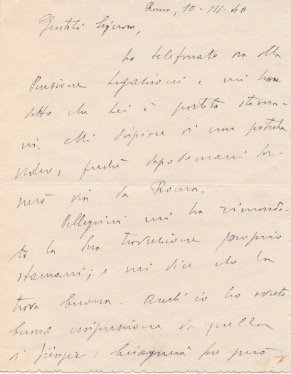 Roma, 10-III-40
Gentile Signora,
ho telefonato ora alla
Pensione e mi han
detto che Lei è partita stama-
ni. Mi dispiace di non poterla
vedere, perché dopodomani
via da Roma.
Pellegrini mi ha rimanda-
to la Sua traduzione proprio
stamani; e mi dice che la
trova buona. Anch'io ho avuto
buona impressione da quella
di Jünger: bisognerà però